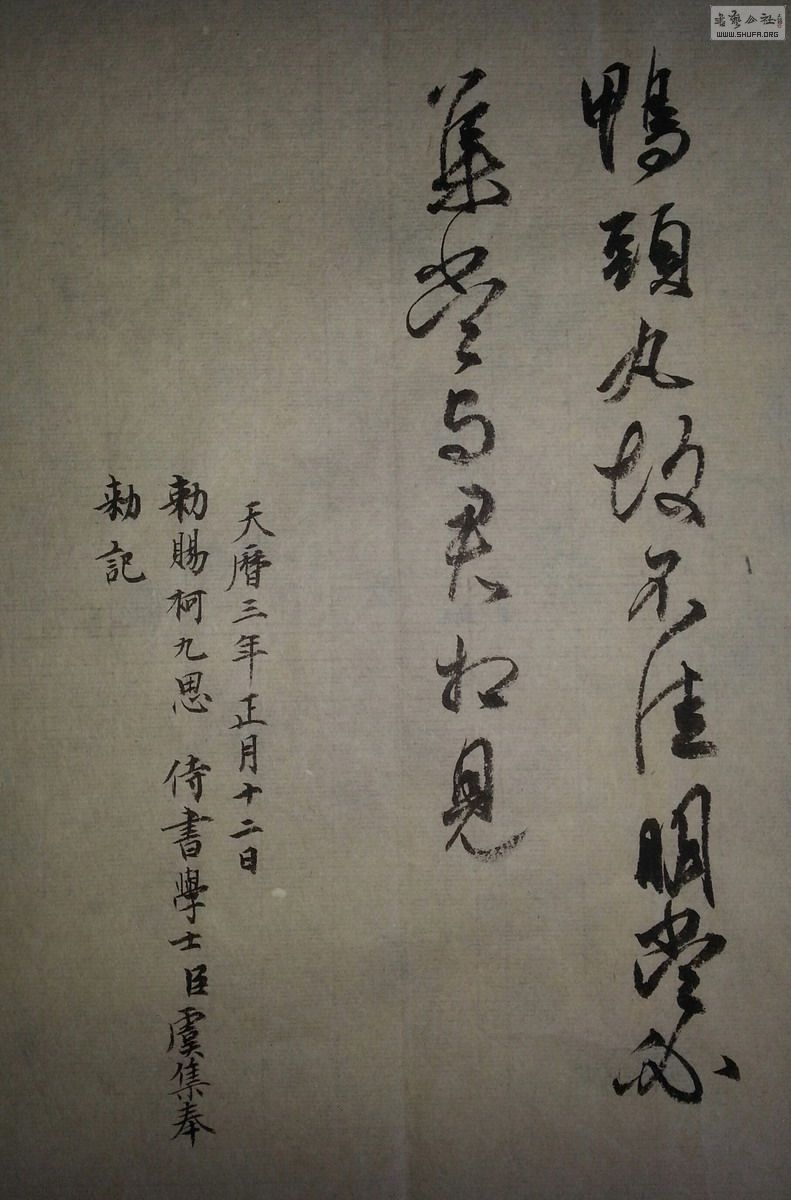 鴨頭丸故不佳明當必
集當与君相見
天曆三年正月十二日
勅賜柯九思 侍書學士臣虞集奉
勅記
书艺公社
WWW.SHUFA.ORG